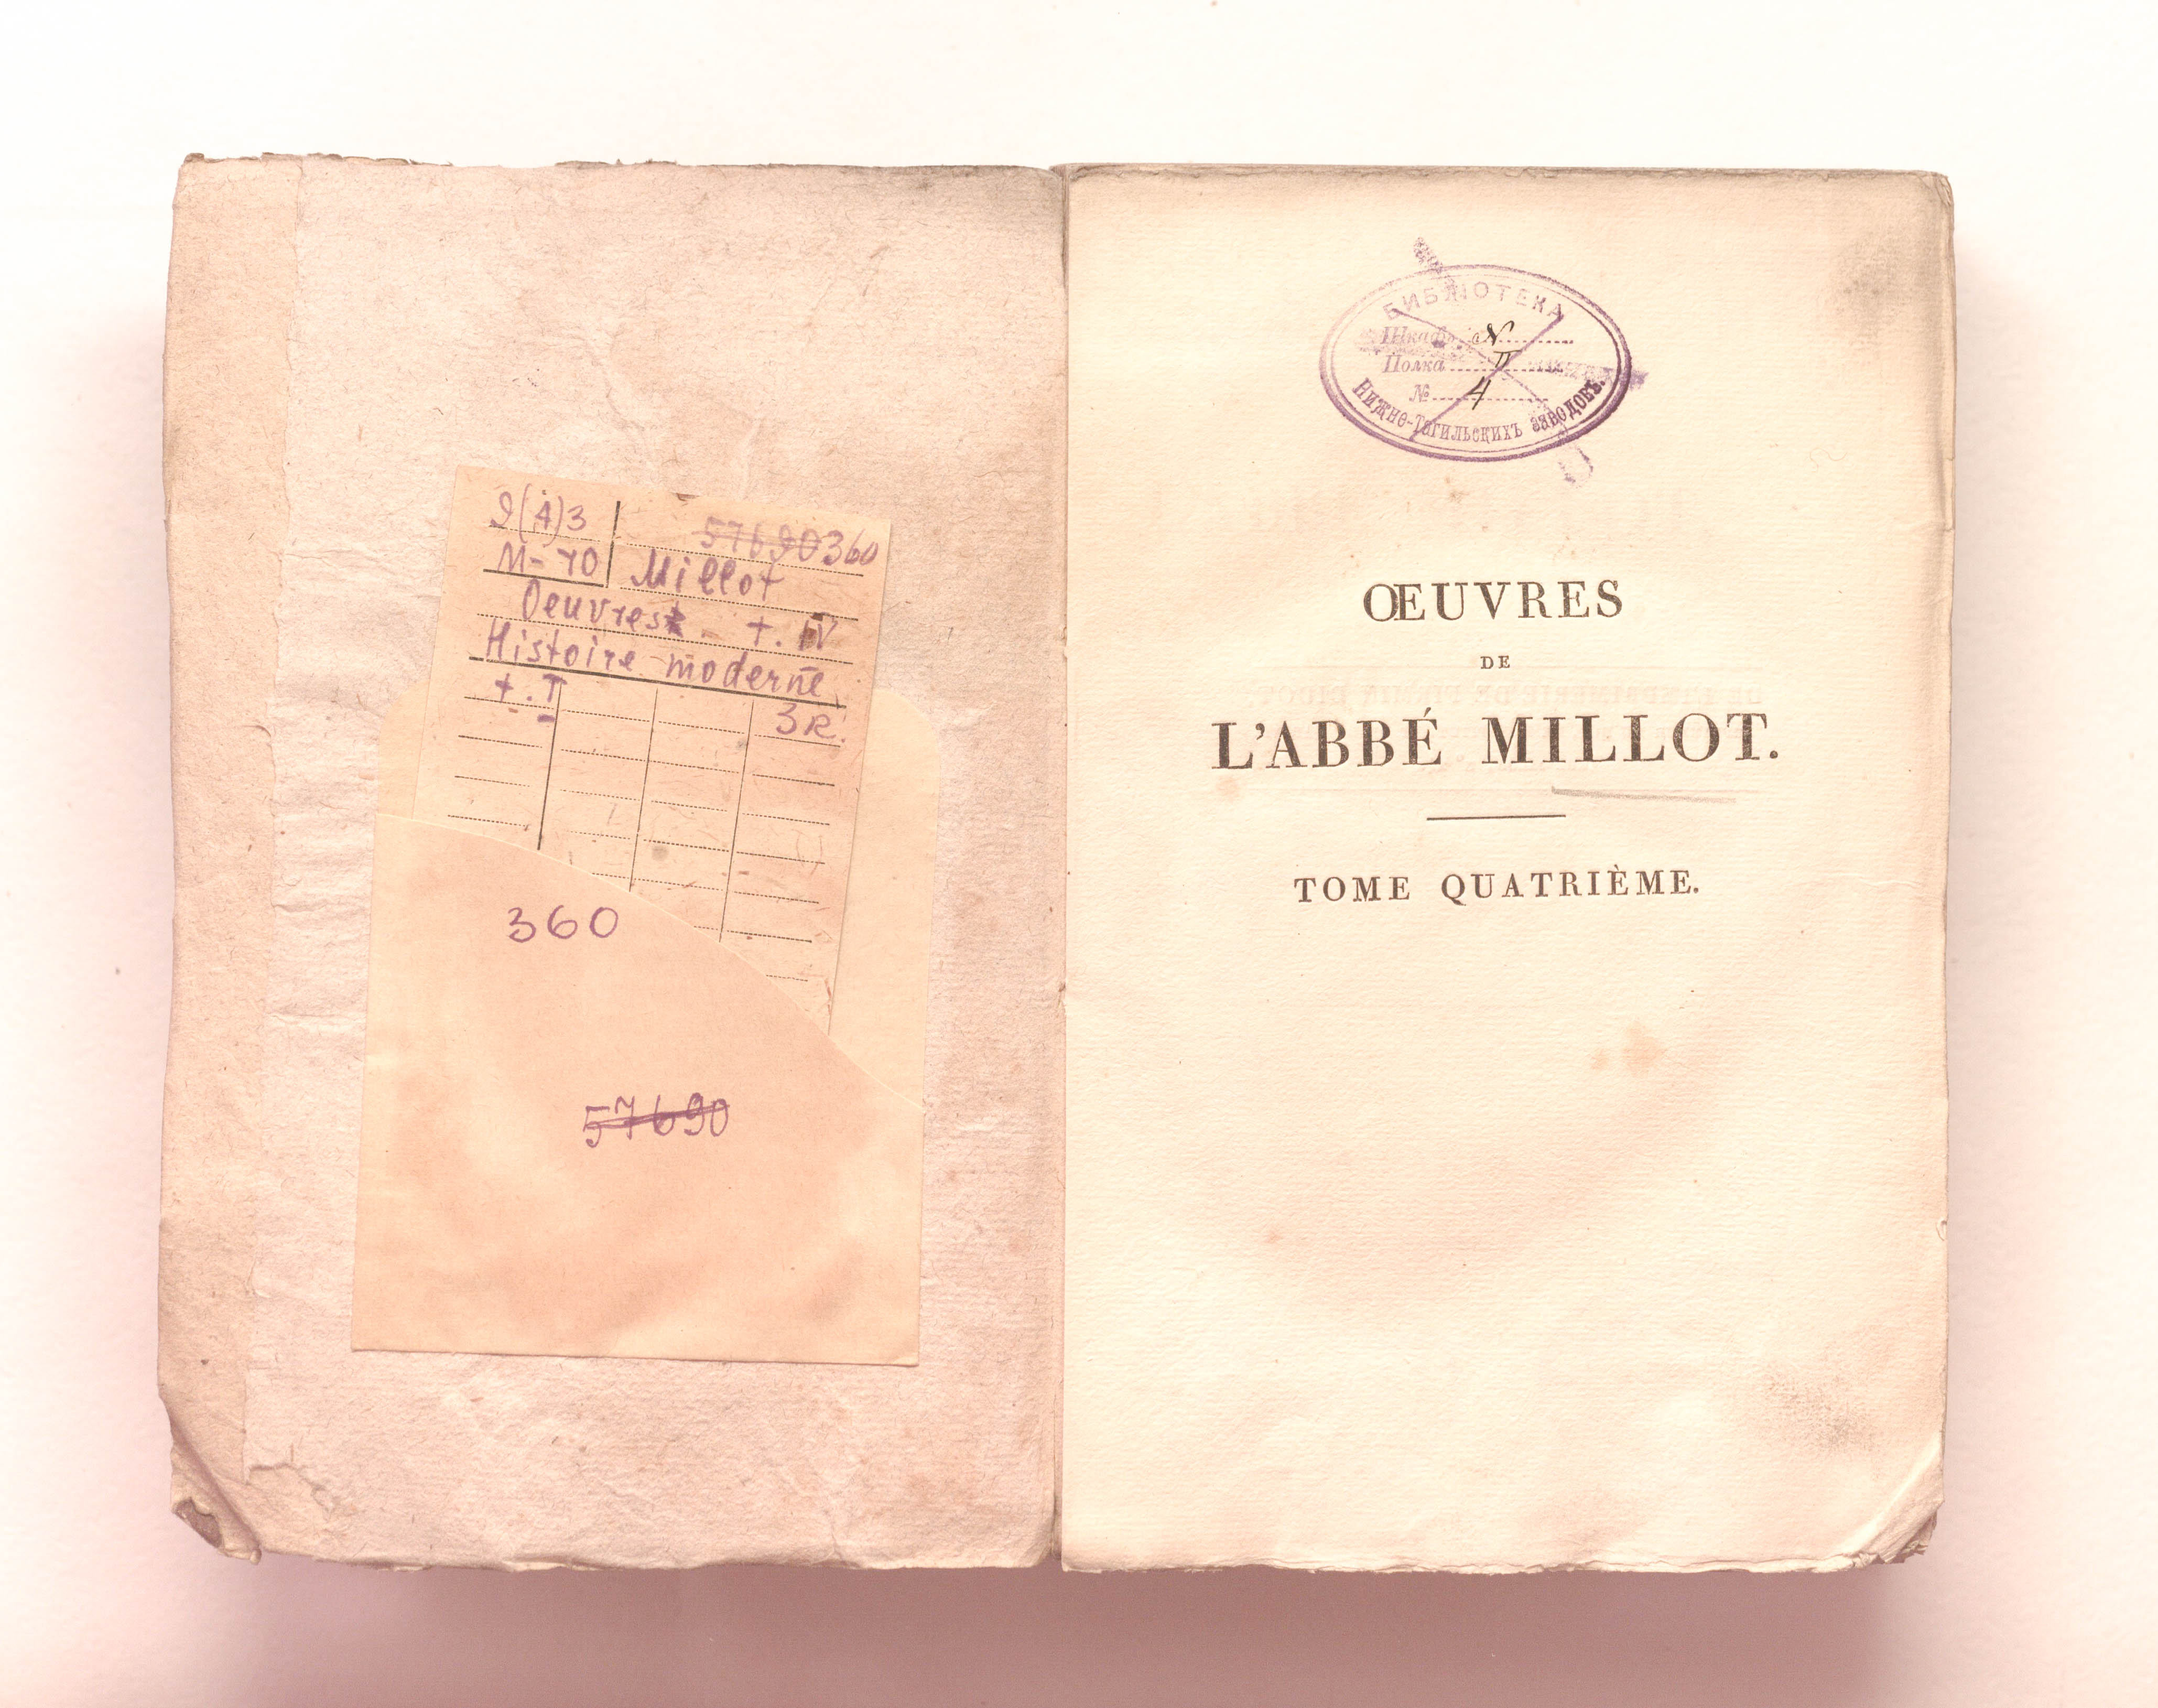 9(4)3
57690 360
М-70 Millot
Oeuvres t. IV
Histoire moderne
t. I
3R.
360
57690
БИБЛІОТЕКА
Шкафъ
Полка II
№ 4
НИЖНЕ-ТАГИЛЬСКИХЪ ЗАВОДОВЪ.
ŒUVRES
DE
L'ABBÉ MILLOT.
TOME QUATRIÈME.